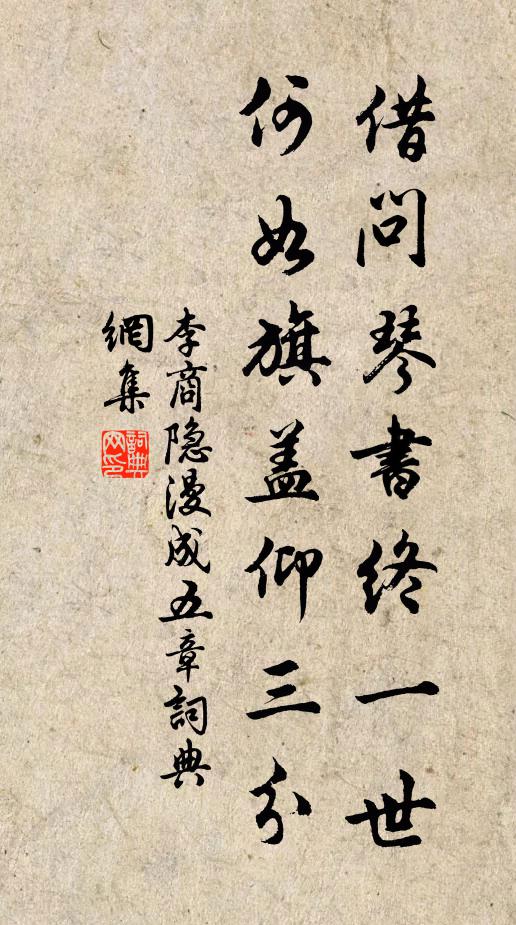 借问琴書终一世
何如旗盖仰三分
李商隐漫成五章詞典
網集
詞典
网印